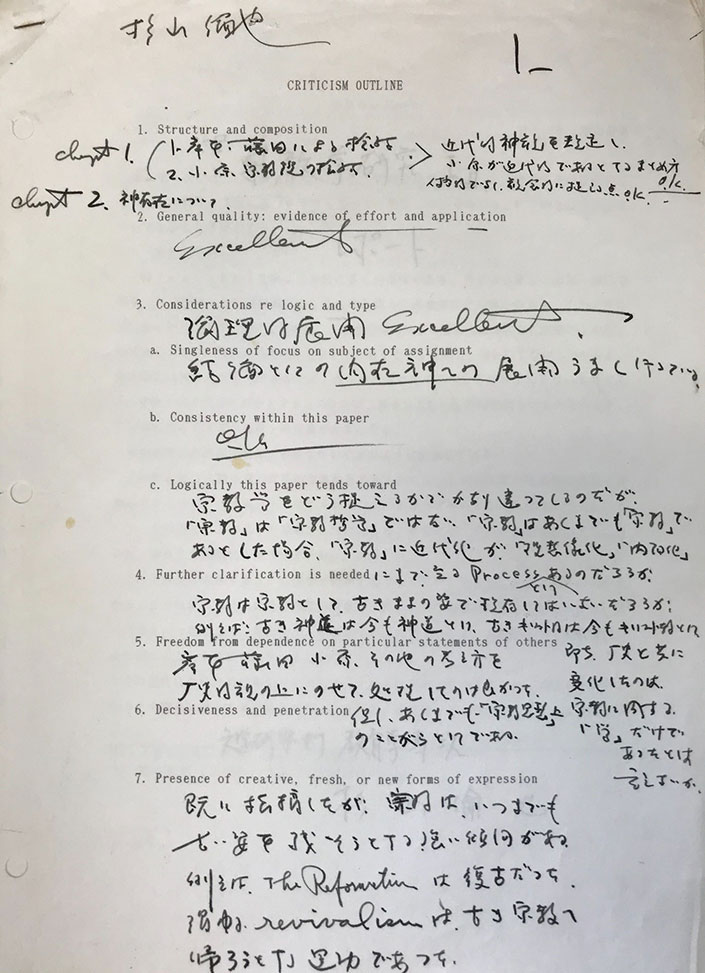 杉山
1
CRITICISM OUTLINE
1. Structure and composition
chapt 1. 1. 岸本 藤田による
2. 小原 宗教
近代的神観を
小原が近代的であるとする o.k.
o.k.
chapt 2. 神存在について.
2. General quality: evidence of effort and application
Excellent
3. Considerations re logic and type
論理的展開 Excellent.
a. Singleness of focus on subject of assignment
結論としての内在神への展開うまく行っている。
b. Consistency within this paper
o.k.
c. Logically this paper tends toward
宗教学をどう捉えるかでかなり違ってくるのだが、
「宗教」は「宗教哲学」ではない. 「宗教」はあくまでも「宗教」で
あるとした場合、「宗教」に近代化が、「内在化」
4. Further clarification is needed にまで至る Process あるのだろうか.
という
宗教は宗教として、古きままの姿で残存してはいないだろうか.
例えば. 古き神道は今も神道とし、古きキリスト教は今もキリスト教として
5. Freedom from dependence on particular statements of others
岸本 藤田 小原. その他の考え方を
歴史的説の上にのせて、処理してのは良かった.
即ち、歴史と共に
変化したのは
宗教に関する
「学」だけで
あったとは
言えまいか.
6. Decisiveness and penetration 但し、あくまでも「宗教思想」上
のことがらとしてである.
7. Presence of creative, fresh, or new forms of expression
既に指摘したが、宗教は、いつまでも
古い姿を残そうとする強い傾向がある
例えば、The Reformation は復古だった.
revivalism は、古き宗教へ
帰ろうとする運動であった.